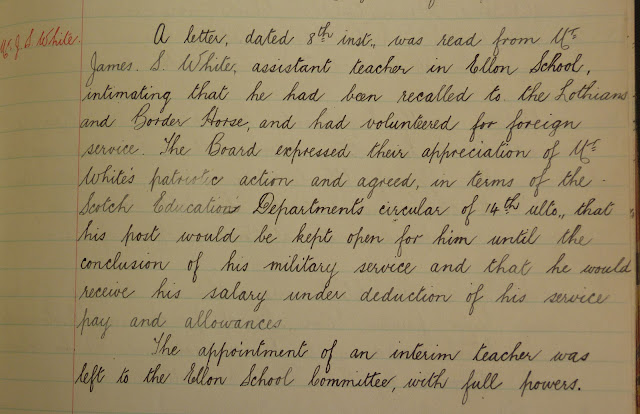 Mr. J. S. White.
A letter, dated 8th inst., was read from Mr.
James. S. White, assistant teacher in Ellon School,
intimating that he had been recalled to the Lothians
and Border Horse, and had volunteered for foreign
service. The Board expressed their appreciation of Mr.
White's patriotic action and agreed, in terms of the
Scotch Education Department's circular of 14th ulto., that
his post would be kept open for him until the
conclusion of his military service and that he would
receive his salary under deduction of his service
pay and allowances
The appointment of an interim teacher was
left to the Ellon School Committee, with full powers.